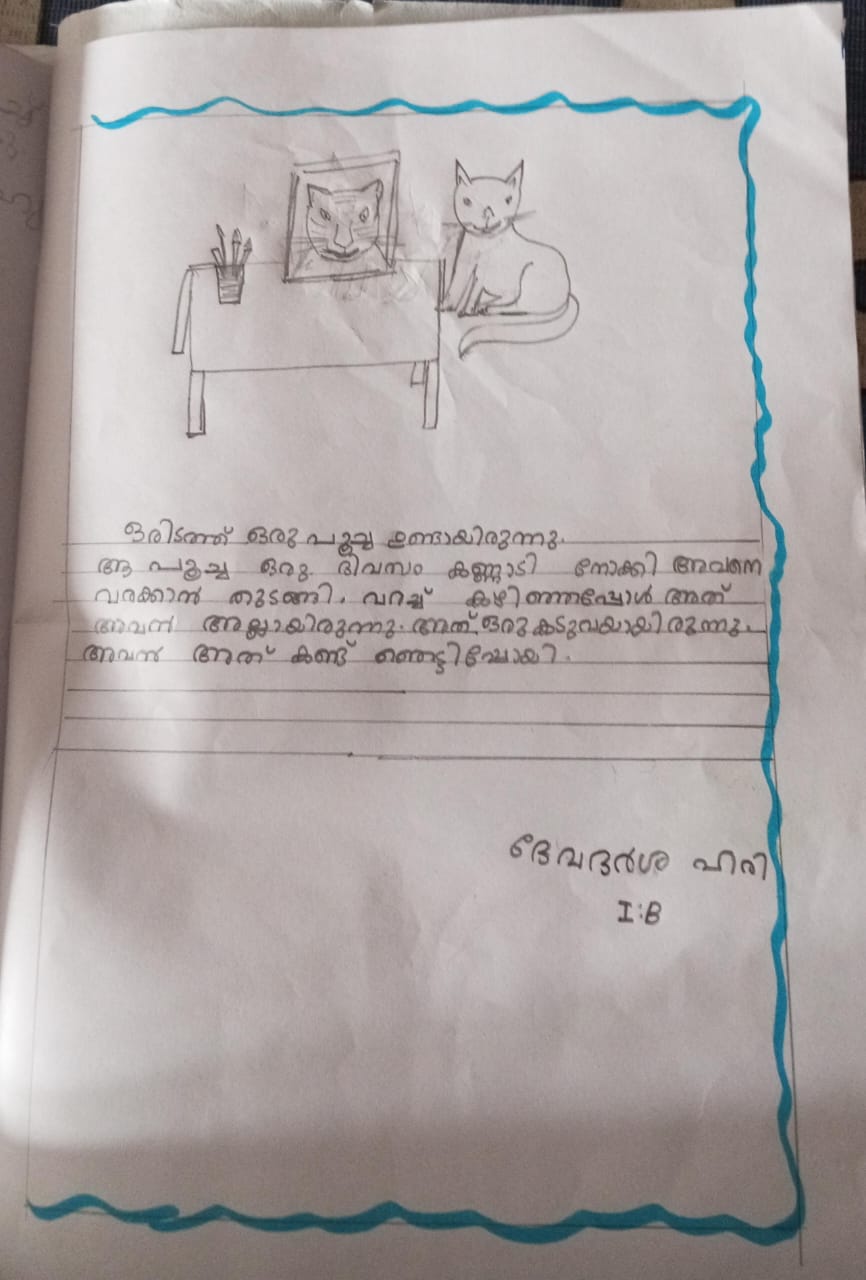 ഒരിടത്ത് ഒരു പൂച്ച ഉണ്ടായിരുന്നു.
ആ പൂച്ച ഒരു ദിവസം കണ്ണാടി നോക്കി അവനെ
വരക്കാൻ തുടങ്ങി. വറച്ച് കഴിഞ്ഞപ്പോൾ അത്
അവൻ അല്ലായിരുന്നു. അത് ഒരു കടുവയായിരുന്നു.
അവൻ അത് കണ്ട് ഞെട്ടിപ്പോയി.
ദേവദർശ ഹരി
I:B